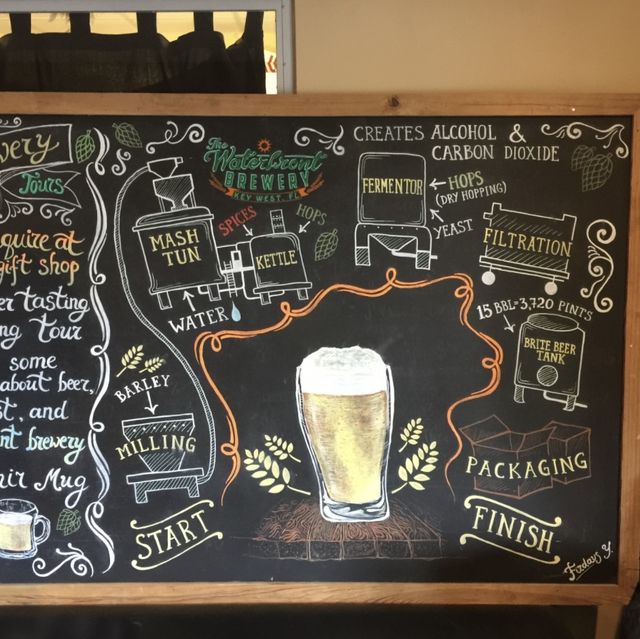 very
Tours
quire at
gift shop
er tasting
ng tour
some
about beer,
st, and
nt brewery
nir Mug
The
Waterfront
BREWERY
KEY WEST, FL
START
MILLING
BARLEY
MASH
TUN
WATER
SPICES
HOPS
KETTLE
CREATES ALCOHOL &
CARBON DIOXIDE
FERMENTOR
HOPS
(DRY HOPPING)
YEAST
FILTRATION
15 BBL=3,720 PINTS
BRITE BEER
TANK
PACKAGING
FINISH
Firdays Y.